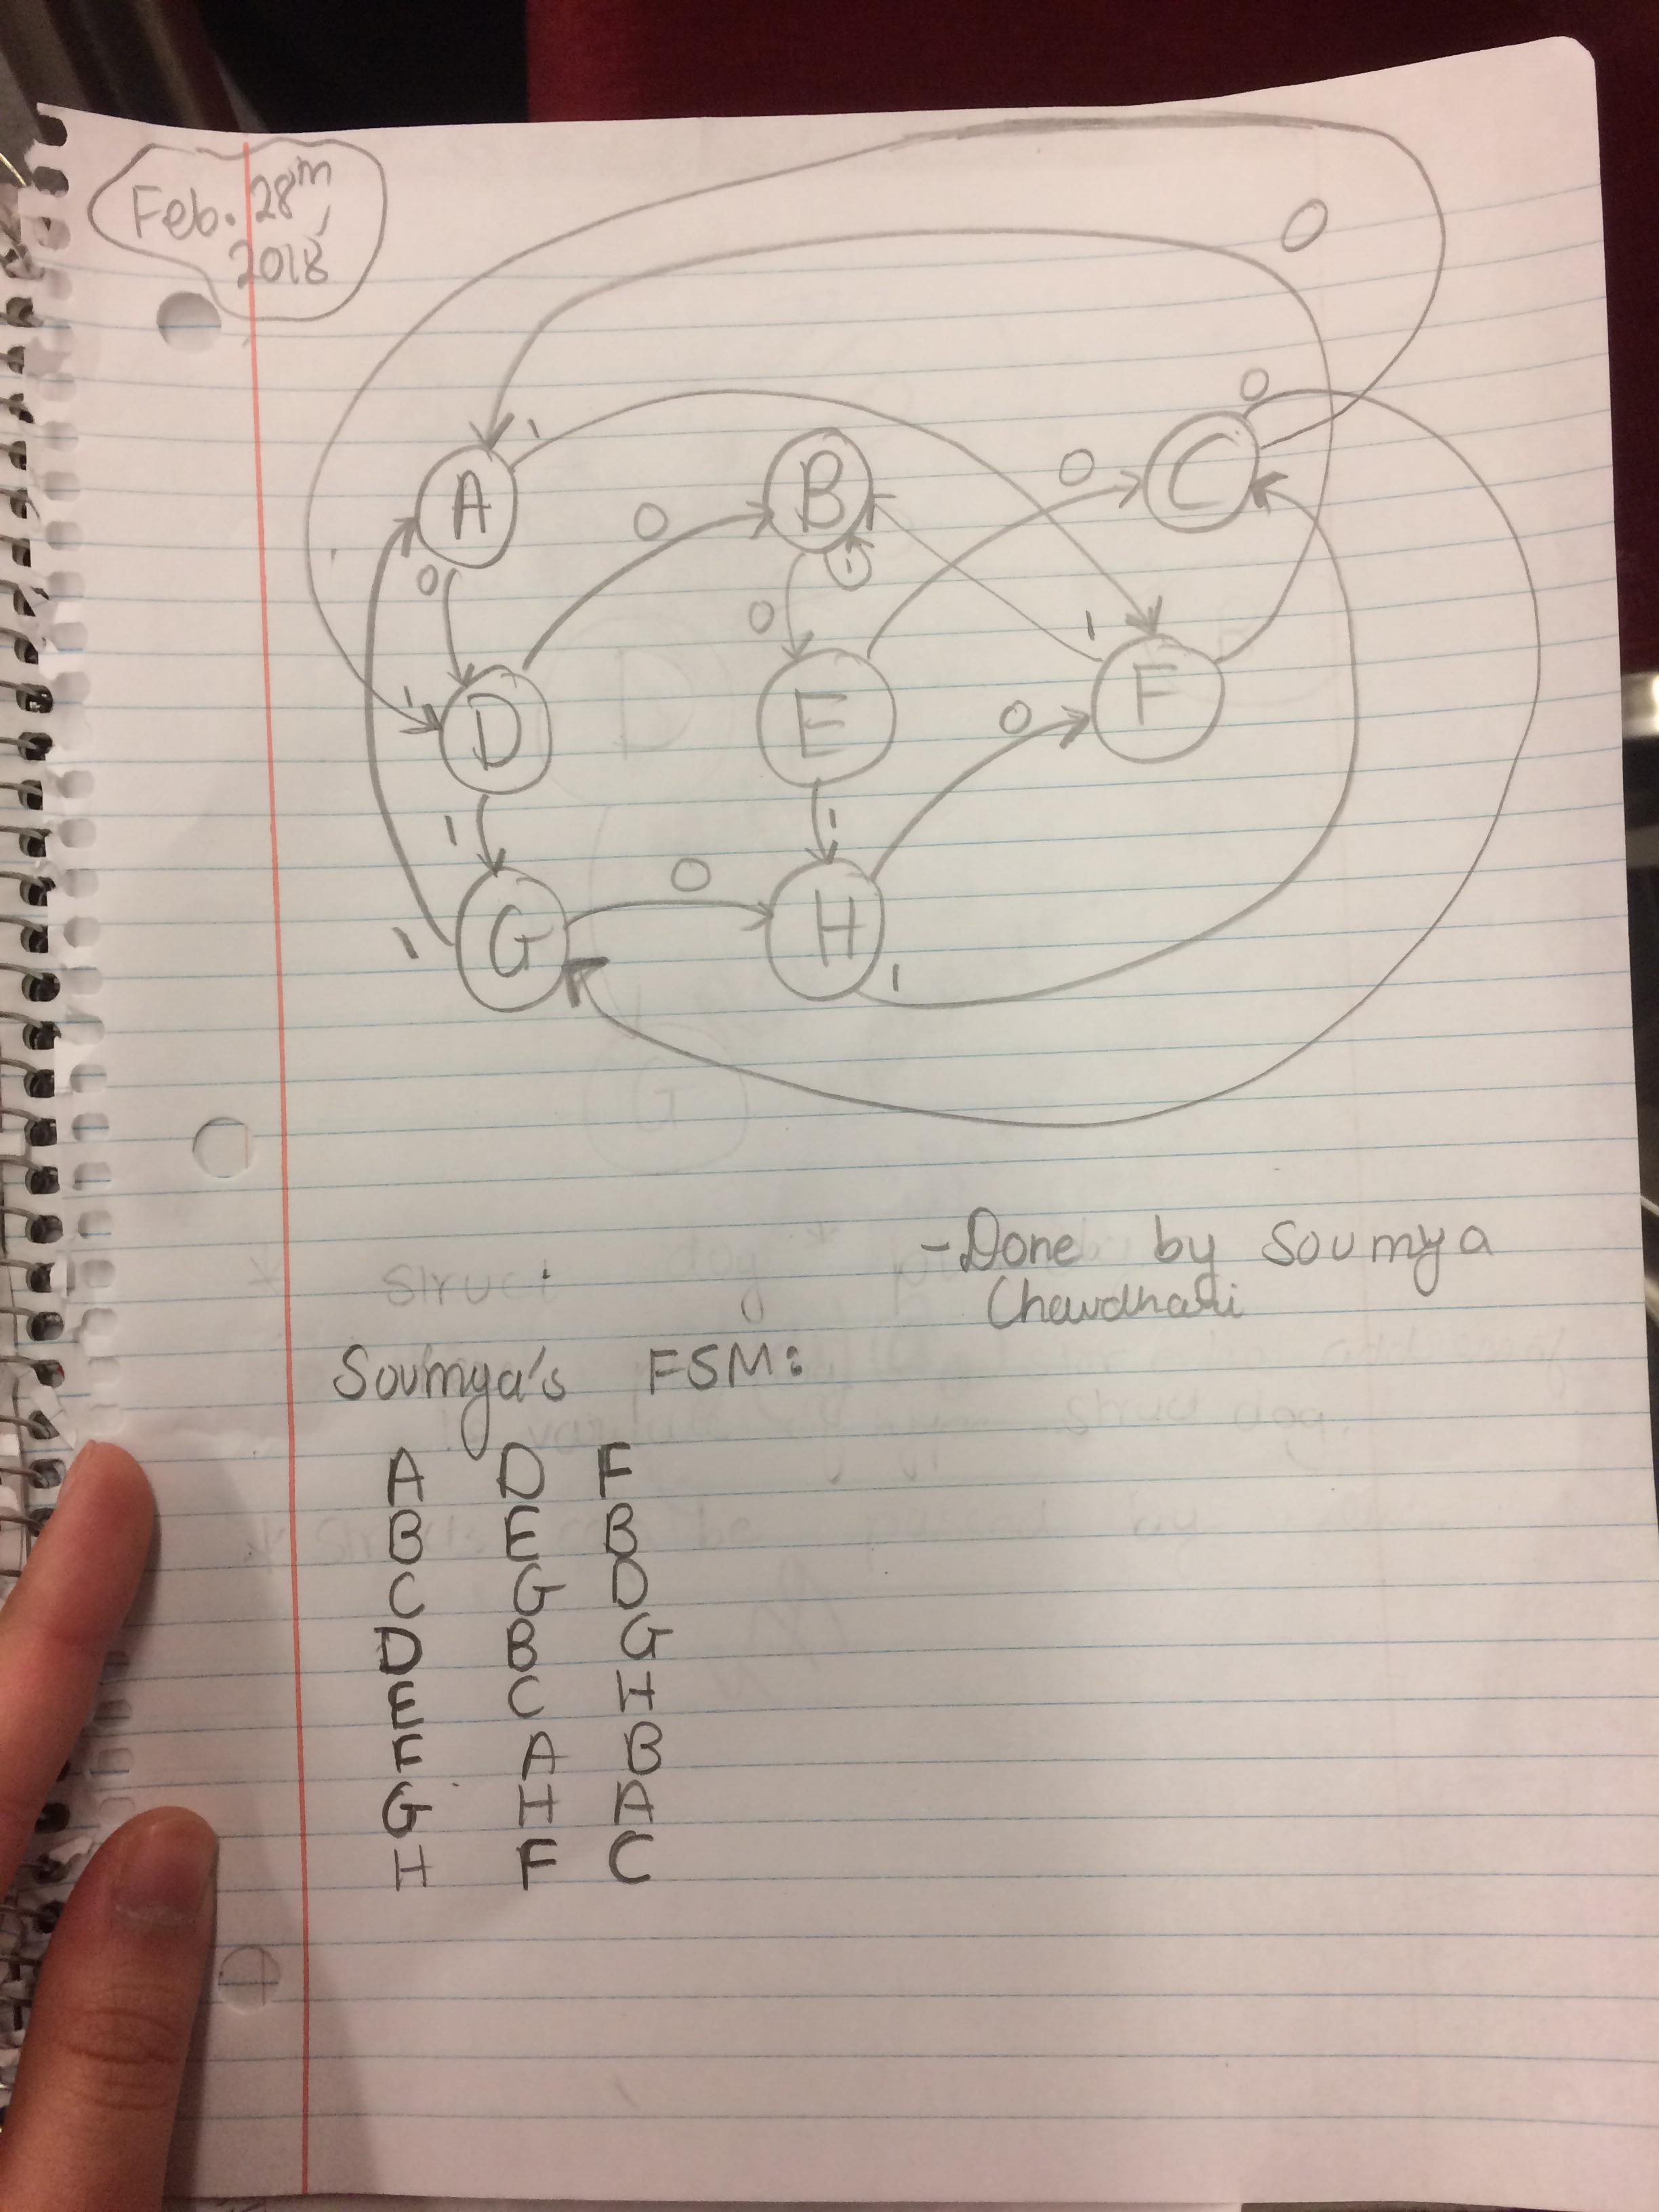 Feb. 28th,
2018
0
0
1
A
B
0
C
0
0
0
1
1
D
E
0
F
1
1
0
G
H
1
1
-Done by Soumya
Chowdhari
Soumya's FSM:
A D F
B E B
C G D
D B G
E C H
F A B
G H A
H F C